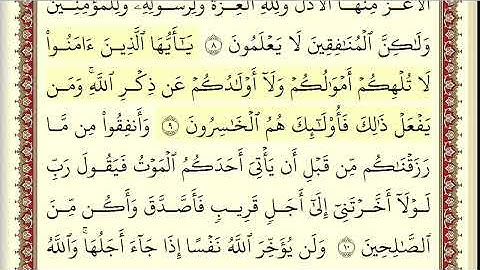 ٱلۡأَعَزُّ مِنۡهَا ٱلۡأَذَلَّۚ وَلِلَّهِ ٱلۡعِزَّةُ وَلِرَسُولِهِۦ وَلِلۡمُؤۡمِنِينَ
وَلَٰكِنَّ ٱلۡمُنَٰفِقِينَ لَا يَعۡلَمُونَ ٨ يَٰٓأَيُّهَا ٱلَّذِينَ ءَامَنُواْ
لَا تُلۡهِكُمۡ أَمۡوَٰلُكُمۡ وَلَآ أَوۡلَٰدُكُمۡ عَن ذِكۡرِ ٱللَّهِۚ وَمَن
يَفۡعَلۡ ذَٰلِكَ فَأُوْلَٰٓئِكَ هُمُ ٱلۡخَٰسِرُونَ ٩ وَأَنفِقُواْ مِن مَّا
رَزَقۡنَٰكُم مِّن قَبۡلِ أَن يَأۡتِيَ أَحَدَكُمُ ٱلۡمَوۡتُ فَيَقُولَ رَبِّ
لَوۡلَآ أَخَّرۡتَنِيٓ إِلَىٰٓ أَجَلٖ قَرِيبٖ فَأَصَّدَّقَ وَأَكُن مِّنَ
ٱلصَّٰلِحِينَ ١٠ وَلَن يُؤَخِّرَ ٱللَّهُ نَفۡسًا إِذَا جَآءَ أَجَلُهَاۚ وَٱللَّهُ